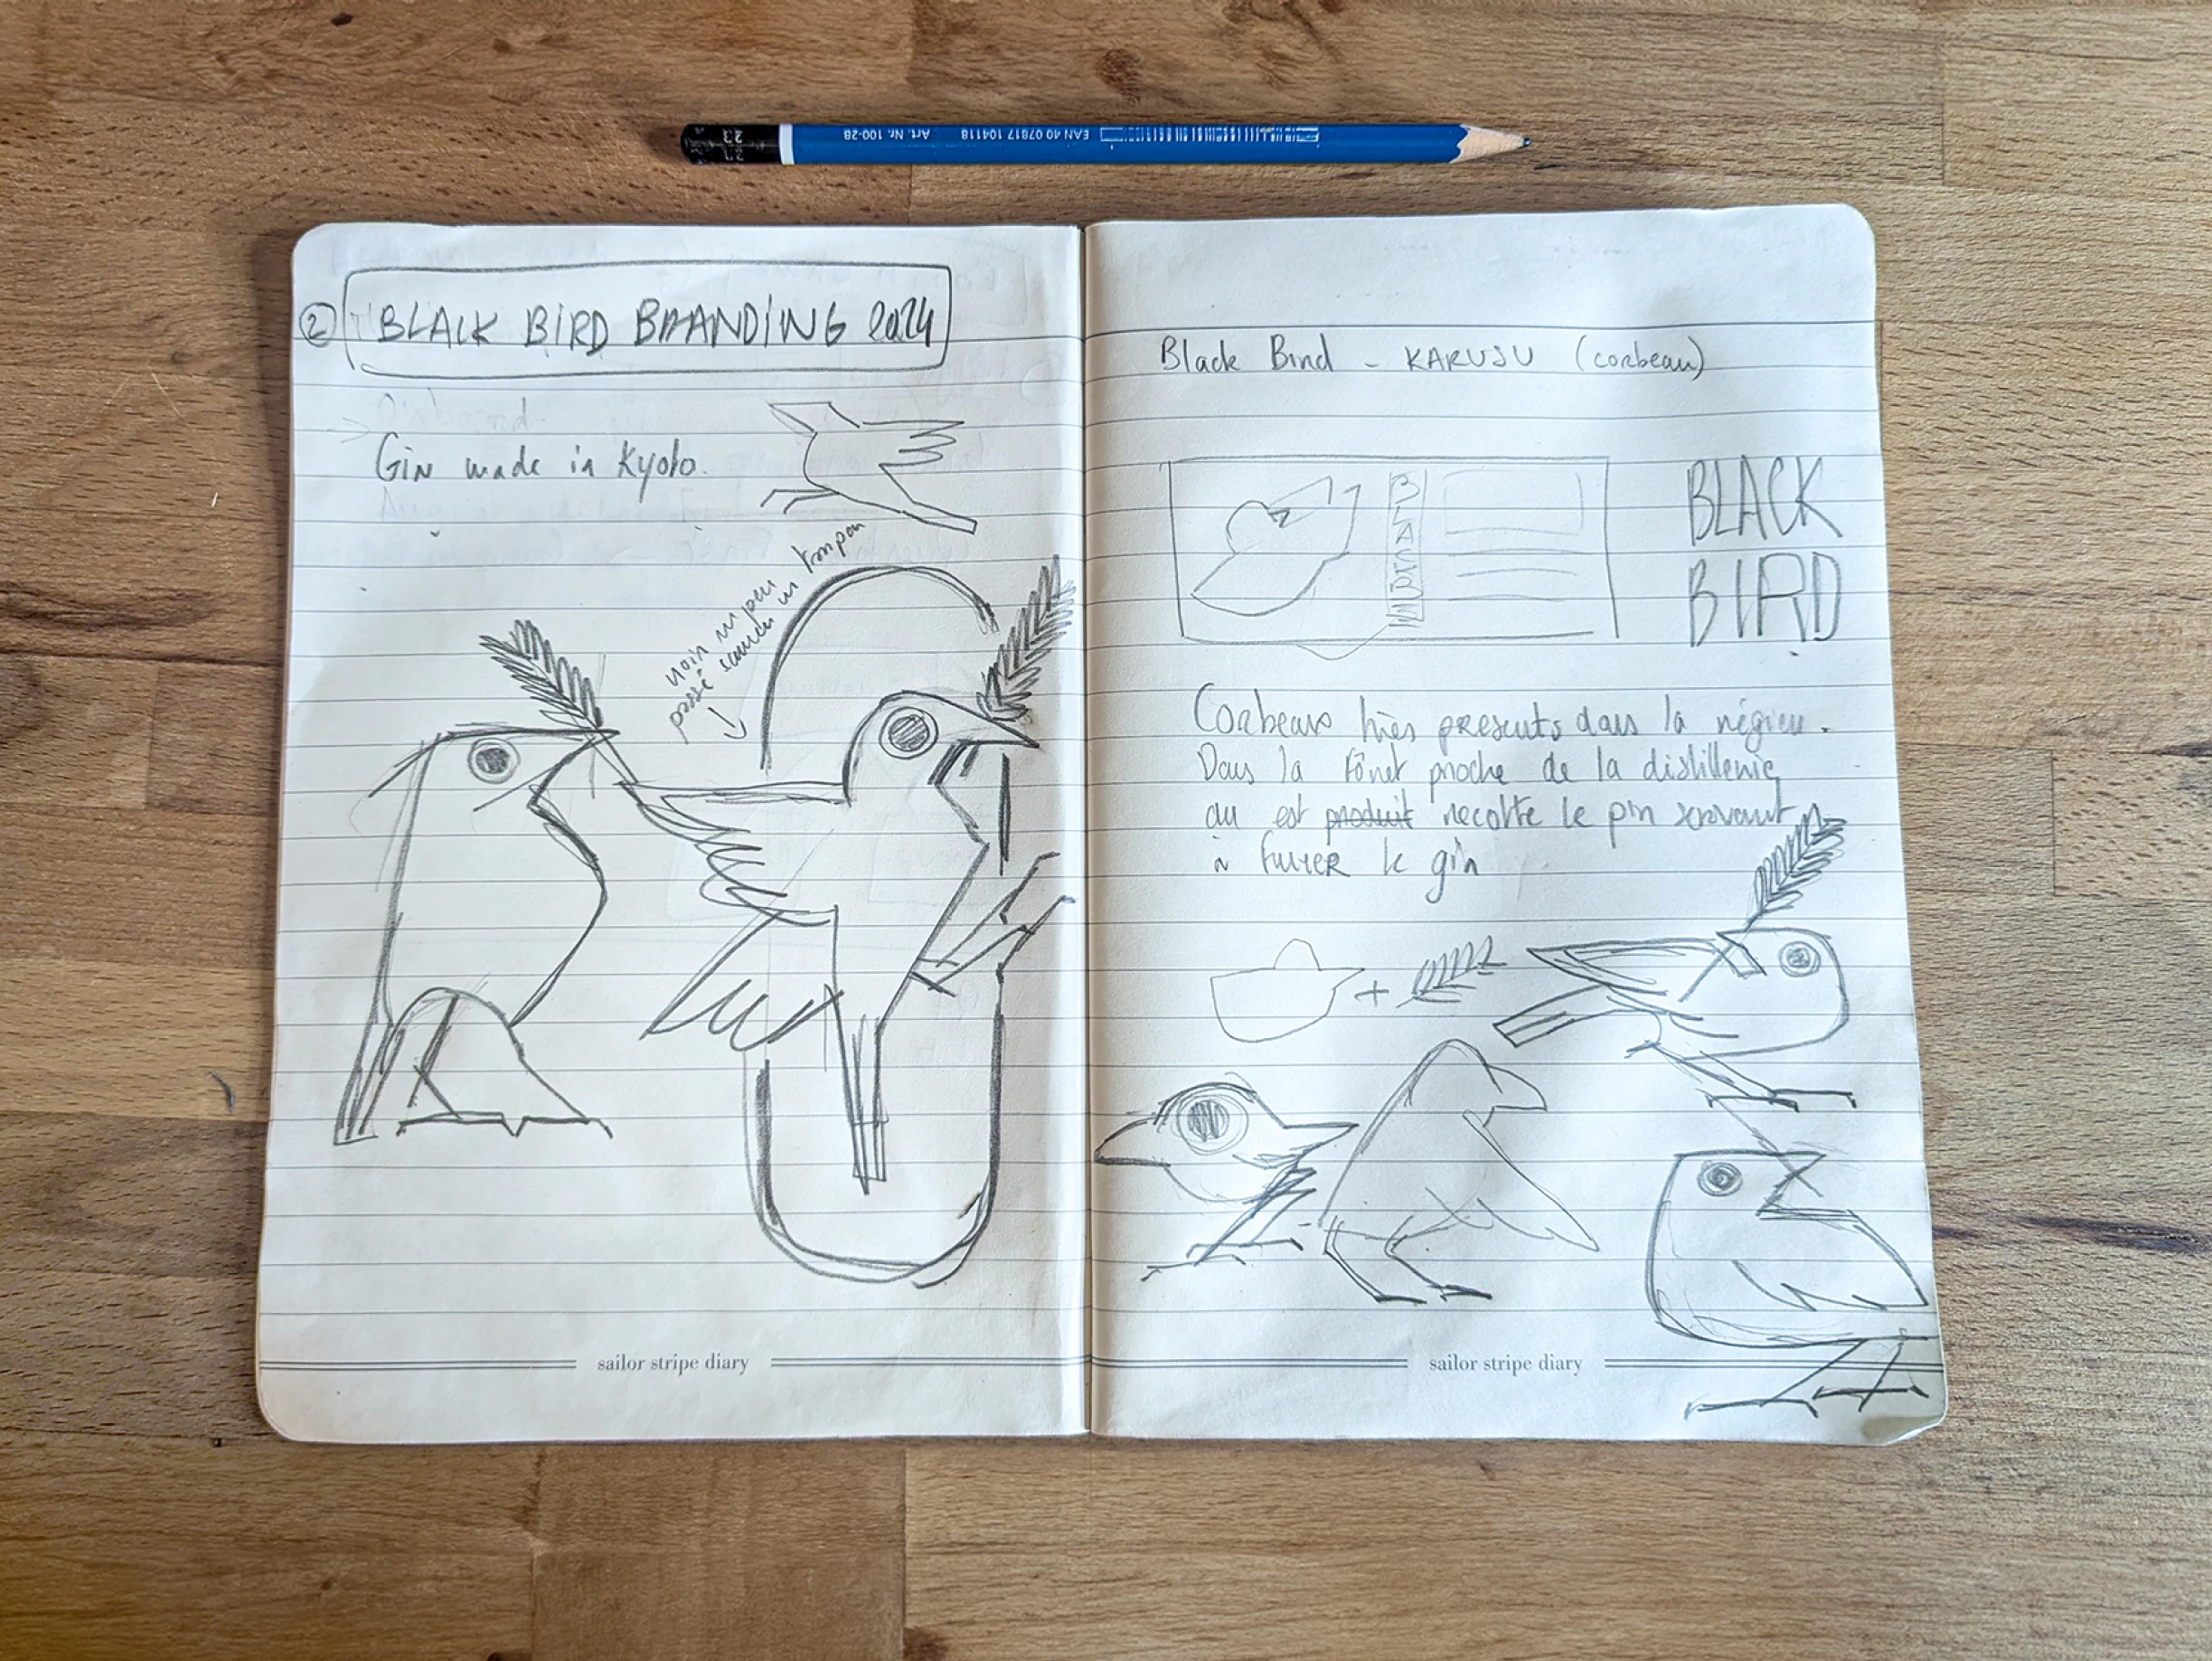 EAN 40 07817 104118 Art. Nr. 100-2B
2 BLACK BIRD BRANDING 2024
Gin made in Kyoto.
noir un peu
passé comme un tampon
sailor stripe diary
Black Bird - KARUSU (corbeau)
BLACK
BIRD
Corbeaux très presents dans la région.
Dans la fôret proche de la distillerie
ou est produit recolte le pin servant
à fumer le gin
+
sailor stripe diary